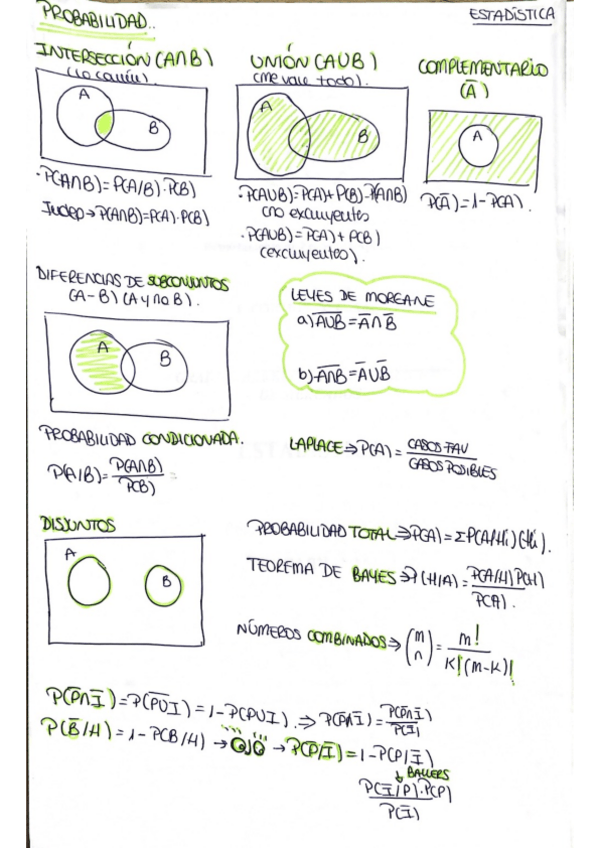 PROBABILIDAD..
ESTADÍSTICA
INTERSECCIÓN (A∩B)
(lo común).
A
B
·P(A∩B)=P(A/B)·P(B)
Indep→P(A∩B)=P(A)·P(B)
UNIÓN (AUB)
(me vale todo).
A
B
·P(AUB)=P(A)+P(B)-P(A∩B)
(no excluyentes
·P(AUB)=P(A)+P(B)
(excluyentes).
COMPLEMENTARIO
(A̅)
A
P(A̅)=1-P(A).
DIFERENCIAS DE SUBCONJUNTOS
(A-B) (A y no B).
A
B
LEYES DE MORGANE
a) A̅U̅B̅=A̅∩B̅
b) A̅∩̅B̅=A̅UB̅
PROBABILIDAD CONDICIONADA.
P(A/B)=P(A∩B)/P(B)
LAPLACE⇒P(A)=CASOS FAV/CASOS POSIBLES
DISJUNTOS
A
B
PROBABILIDAD TOTAL⇒P(A)=ΣP(A/Hi)(Hi).
TEOREMA DE BAYES⇒P(H/A)=P(A/H)P(H)/P(A).
NÚMEROS COMBINADOS⇒(m n)=m!/K!(m-K)!
P(P̅∩I̅)=P(P̅U̅I̅)=1-P(PUI).⇒P(P̅/I̅)=P(P̅∩I̅)/P(I̅)
P(B̅/H)=1-P(B/H)→ →P(P̅/I̅)=1-P(P/I̅)
↓BAYERS
P(I̅/P)·P(P)/P(I̅)